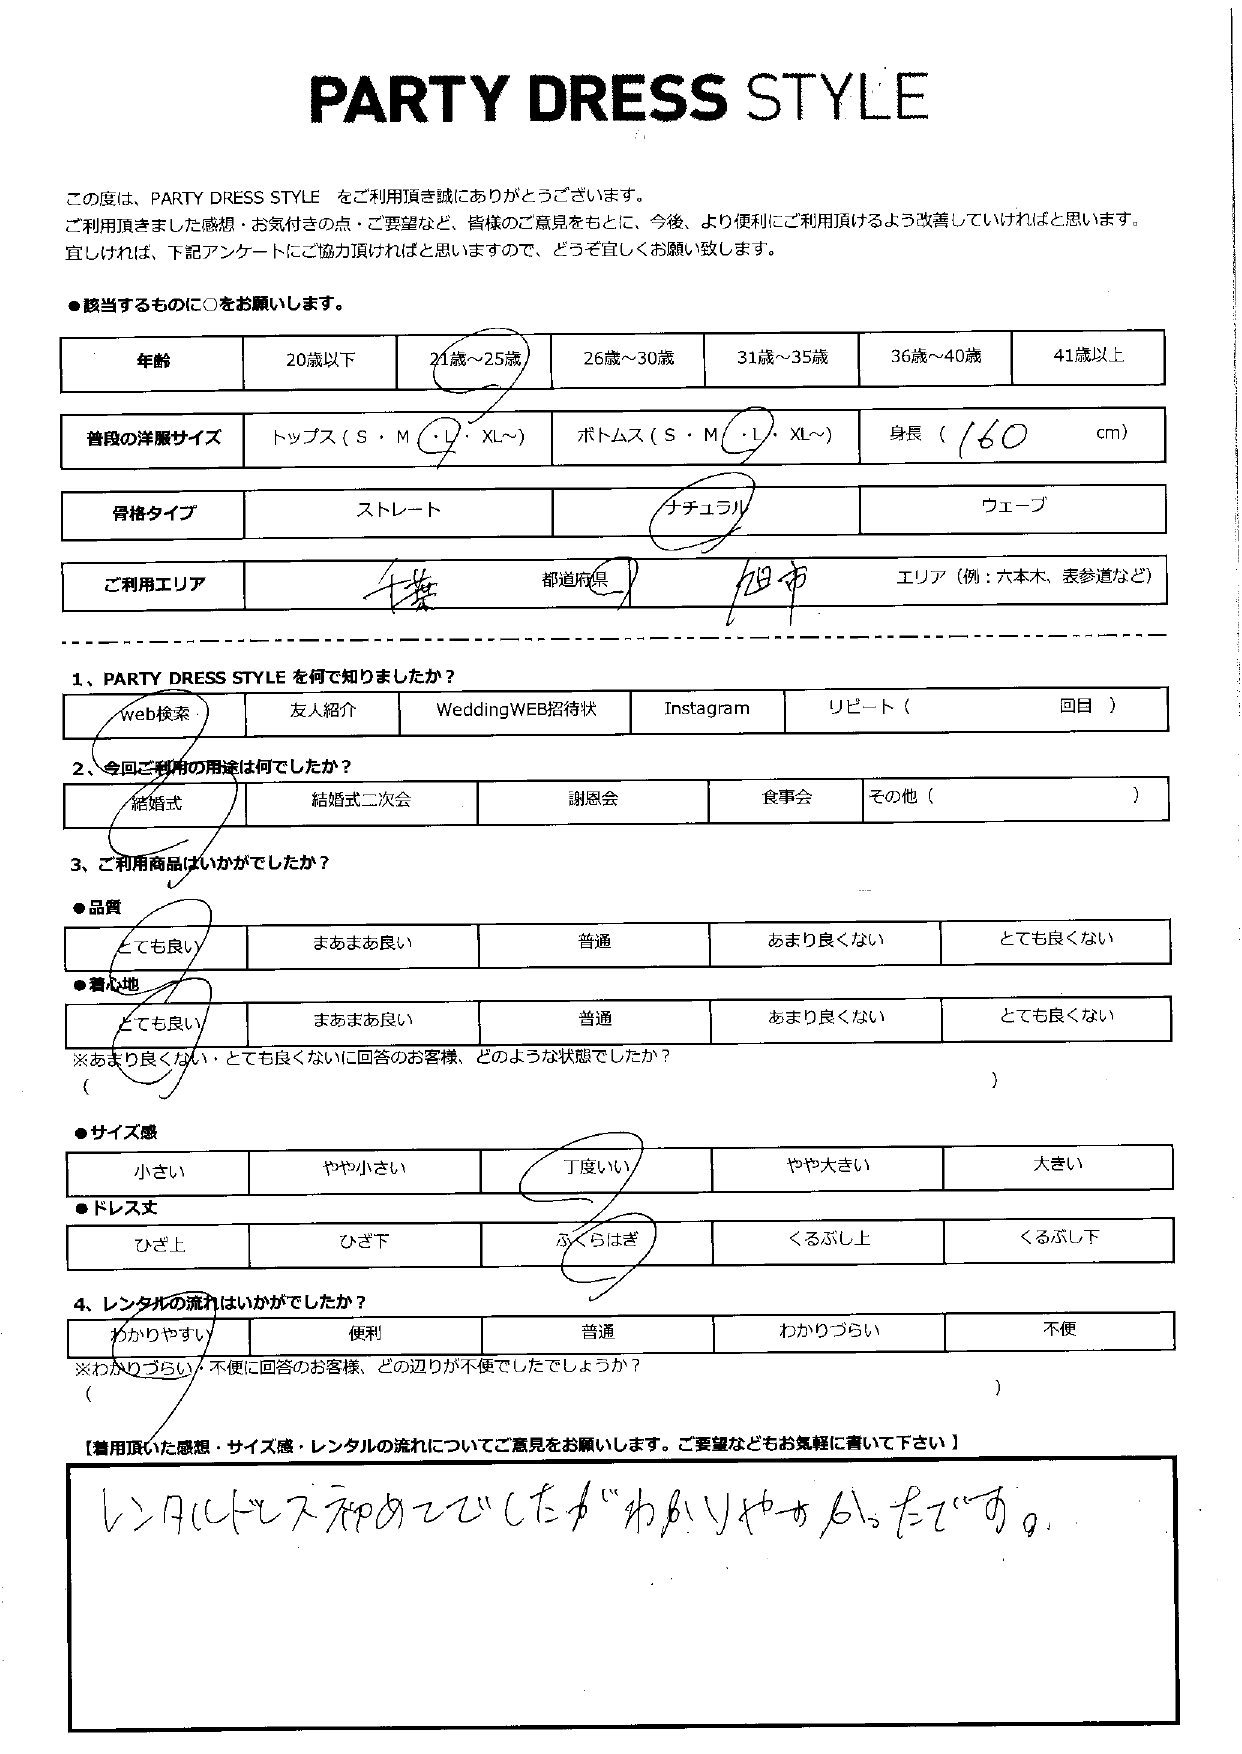 PARTY DRESS STYLE
この度は、PARTY DRESS STYLE をご利用頂き誠にありがとうございます。
ご利用頂きました感想・お気付きの点・ご要望など、皆様のご意見をもとに、今後、より便利にご利用頂けるよう改善していければと思います。
宜しければ、下記アンケートにご協力頂ければと思いますので、どうぞ宜しくお願い致します。
●該当するものに○をお願いします。
年齢 20歳以下 21歳～25歳 26歳～30歳 31歳～35歳 36歳～40歳 41歳以上
普段の洋服サイズ トップス（ S ・ M ・ L ・ XL～） ボトムス（ S ・ M ・ L ・ XL～） 身長 （ 160 cm）
骨格タイプ ストレート ナチュラル ウェーブ
ご利用エリア 千葉 都道府県 旭市 エリア（例：六本木、表参道など）
1、PARTY DRESS STYLE を何で知りましたか？
web検索 友人紹介 WeddingWEB招待状 Instagram リピート（ 回目 ）
2、今回ご利用の用途は何でしたか？
結婚式 結婚式二次会 謝恩会 食事会 その他（ ）
3、ご利用商品はいかがでしたか？
●品質
とても良い まあまあ良い 普通 あまり良くない とても良くない
●着心地
とても良い まあまあ良い 普通 あまり良くない とても良くない
※あまり良くない・とても良くないに回答のお客様、どのような状態でしたか？
（ ）
●サイズ感
小さい やや小さい 丁度いい やや大きい 大きい
●ドレス丈
ひざ上 ひざ下 ふくらはぎ くるぶし上 くるぶし下
4、レンタルの流れはいかがでしたか？
わかりやすい 便利 普通 わかりづらい 不便
※わかりづらい・不便に回答のお客様、どの辺りが不便でしたでしょうか？
（ ）
【着用頂いた感想・サイズ感・レンタルの流れについてご意見をお願いします。ご要望などもお気軽に書いて下さい 】
レンタルドレス初めてでしたがわかりやすかったです。